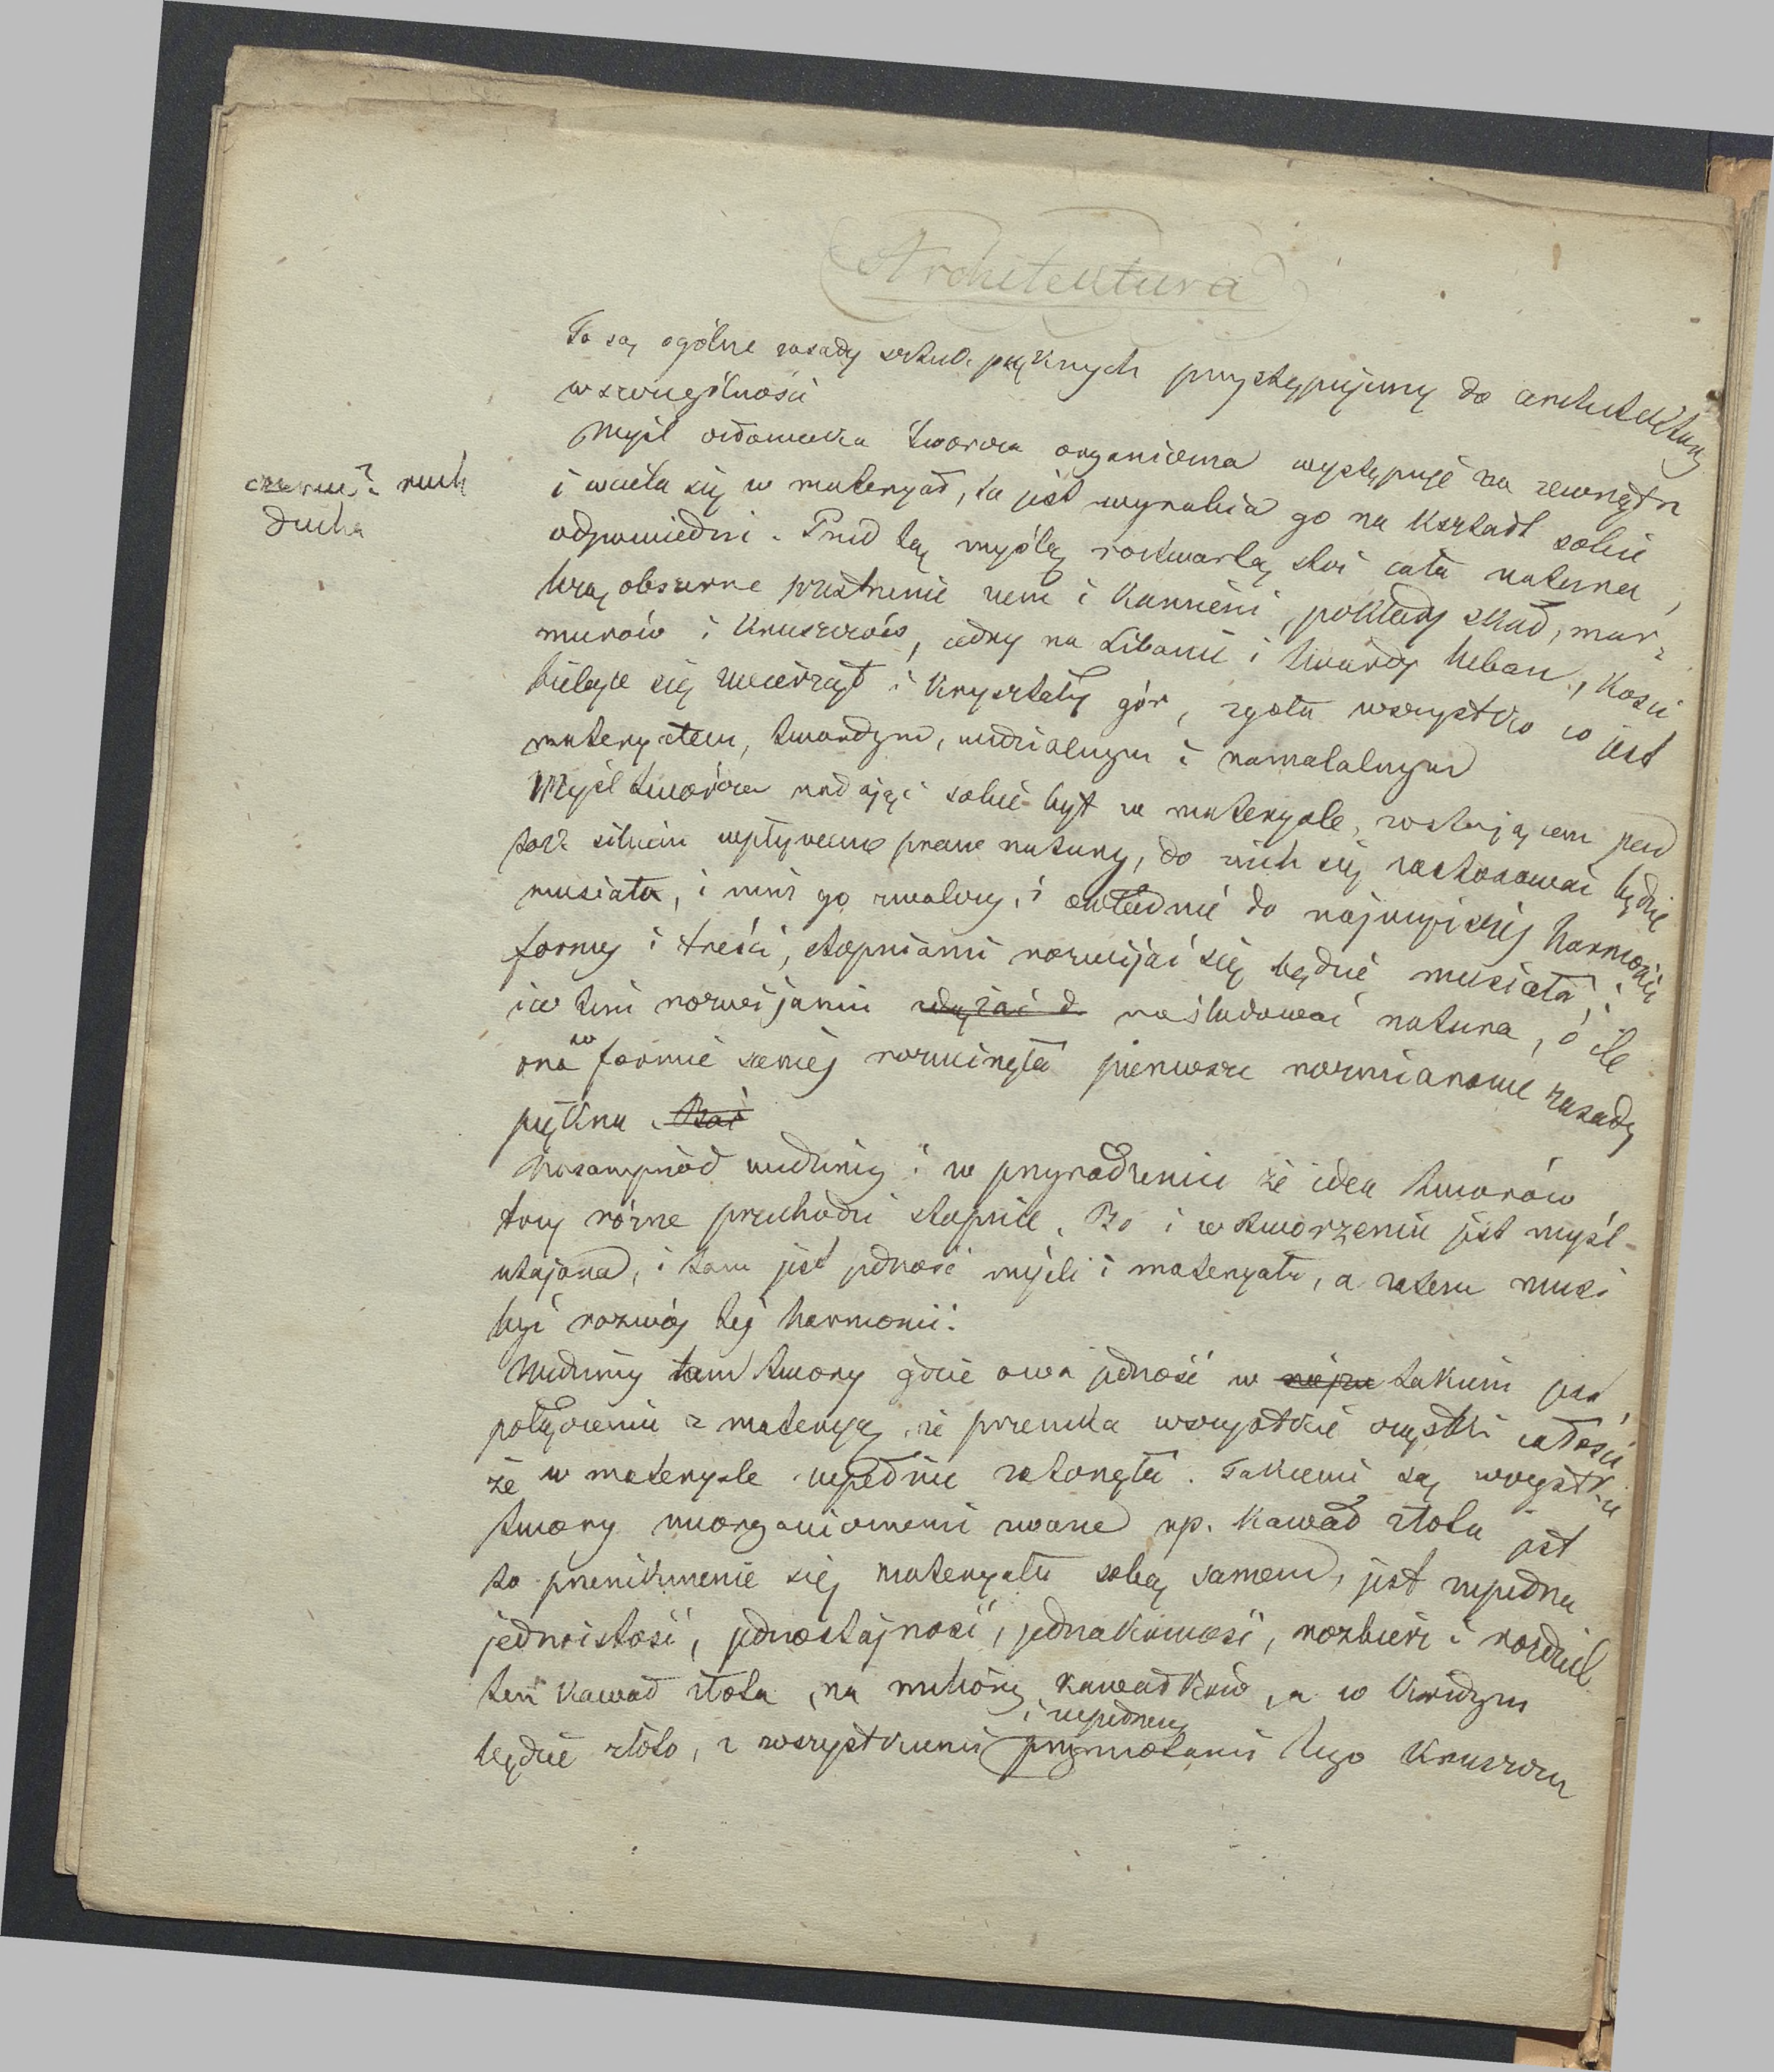 Architektura
To są ogólne zasady sztuk pięknych przystępujemy do architektury
w szczególności
Myśl człowieka twórcza organiczna występuje na zewnątrz
i wciela się w materyał, to jest wyrabia go na kształt sobie
odpowiedni. Przed tą myślą roztwartą stoi cała natura,
ruch
ducha
obszerne przestrzenie ziemi i kamieni, pokłady skał, mar-
murów i kruszców, cedry na Libanie i twardy heban, kości
bielące się zwierząt i kryształy gór, zgoła wszystko co jest
materyałem, twardym, widzialnym i namacalnym
Myśl twórcza nadając sobie byt w materyale, zostającem pod
silnem wpływem praw natury, do nich się zastosować będzie
musiała, i nim go zwalczy, i owładnie do najwyższej harmonii
formy i treści, stopniami rozwijać się będzie musiała,
i w tem rozwijaniu dążyć d naśladować natura, o ile
ona w formie swojej rozwinęła pierwsze rozmiarowe zasady
piękna. Bać
Nasamprzód widzimy i w przyrodzeniu że idea tworów
trzy różne przechodzi stopnie. Bo i w stworzeniu jest myśl
utajona, i tam jest jedność myśli i materyału, a zatem musi
być rozwój tej harmonii.
Widzimy tam twory gdzie owa jedność w takiem jest
połączeniu z materyą, że przenika wszystkie cząstki całości,
że w materyale zupełnie zatonęła. Takiemi są wszystkie
twory nieorganicznemi zwane np. kawał złota jest
to przeniknienie się materyału sobą samem, jest zupełna
jednoistość, jednostajność, jednakowość, rozbierz i rozdziel
ten kawał złota, na miliony kawałków, a w każdym
i zupełnemi
będzie złoto, z wszystkiemi przymiotami tego kruszcu